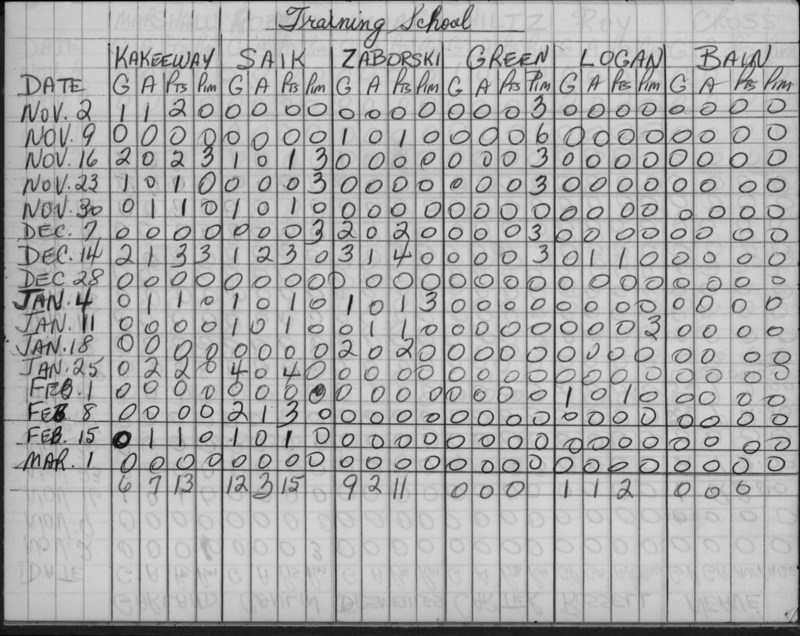 Training School
KAKEEWAY SAIK ZABORSKI GREEN LOGAN BAUN
DATE G A Pts Pim G A Pts Pim G A Pts Pim G A Pts Pim G A Pts Pim G A Pts Pim
NOV. 2 1 1 2 0 0 0 0 0 0 0 0 0 0 0 0 3 0 0 0 0 0 0 0 0
NOV. 9 0 0 0 0 0 0 0 0 1 0 1 0 0 0 0 6 0 0 0 0 0 0 0 0
NOV. 16 2 0 2 3 1 0 1 3 0 0 0 0 0 0 0 3 0 0 0 0 0 0 0 0
NOV. 23 1 0 1 0 0 0 0 3 0 0 0 0 0 0 0 3 0 0 0 0 0 0 0 0
NOV. 30 0 1 1 0 1 0 1 0 0 0 0 0 0 0 0 0 0 0 0 0 0 0 0 0
DEC. 7 0 0 0 0 0 0 0 3 2 0 2 0 0 0 0 3 0 0 0 0 0 0 0 0
DEC. 14 2 1 3 3 1 2 3 0 3 1 4 0 0 0 0 3 0 1 1 0 0 0 0 0
DEC 28 0 0 0 0 0 0 0 0 0 0 0 0 0 0 0 0 0 0 0 0 0 0 0 0
JAN. 4 0 1 1 0 1 0 1 0 1 0 1 3 0 0 0 0 0 0 0 0 0 0 0 0
JAN. 11 0 0 0 0 1 0 1 0 0 1 1 0 0 0 0 0 0 0 0 3 0 0 0 0
JAN. 18 0 0 0 0 0 0 0 0 2 0 2 0 0 0 0 0 0 0 0 0 0 0 0 0
JAN. 25 0 2 2 0 4 0 4 0 0 0 0 0 0 0 0 0 0 0 0 0 0 0 0 0
FEB. 1 0 0 0 0 0 0 0 0 0 0 0 0 0 0 0 0 1 0 1 0 0 0 0 0
FEB 8 0 0 0 0 2 1 3 0 0 0 0 0 0 0 0 0 0 0 0 0 0 0 0 0
FEB. 15 0 1 1 0 1 0 1 0 0 0 0 0 0 0 0 0 0 0 0 0 0 0 0 0
MAR. 1 0 0 0 0 0 0 0 0 0 0 0 0 0 0 0 0 0 0 0 0 0 0 0 0
6 7 13 12 3 15 9 2 11 0 0 0 1 1 2 0 0 0